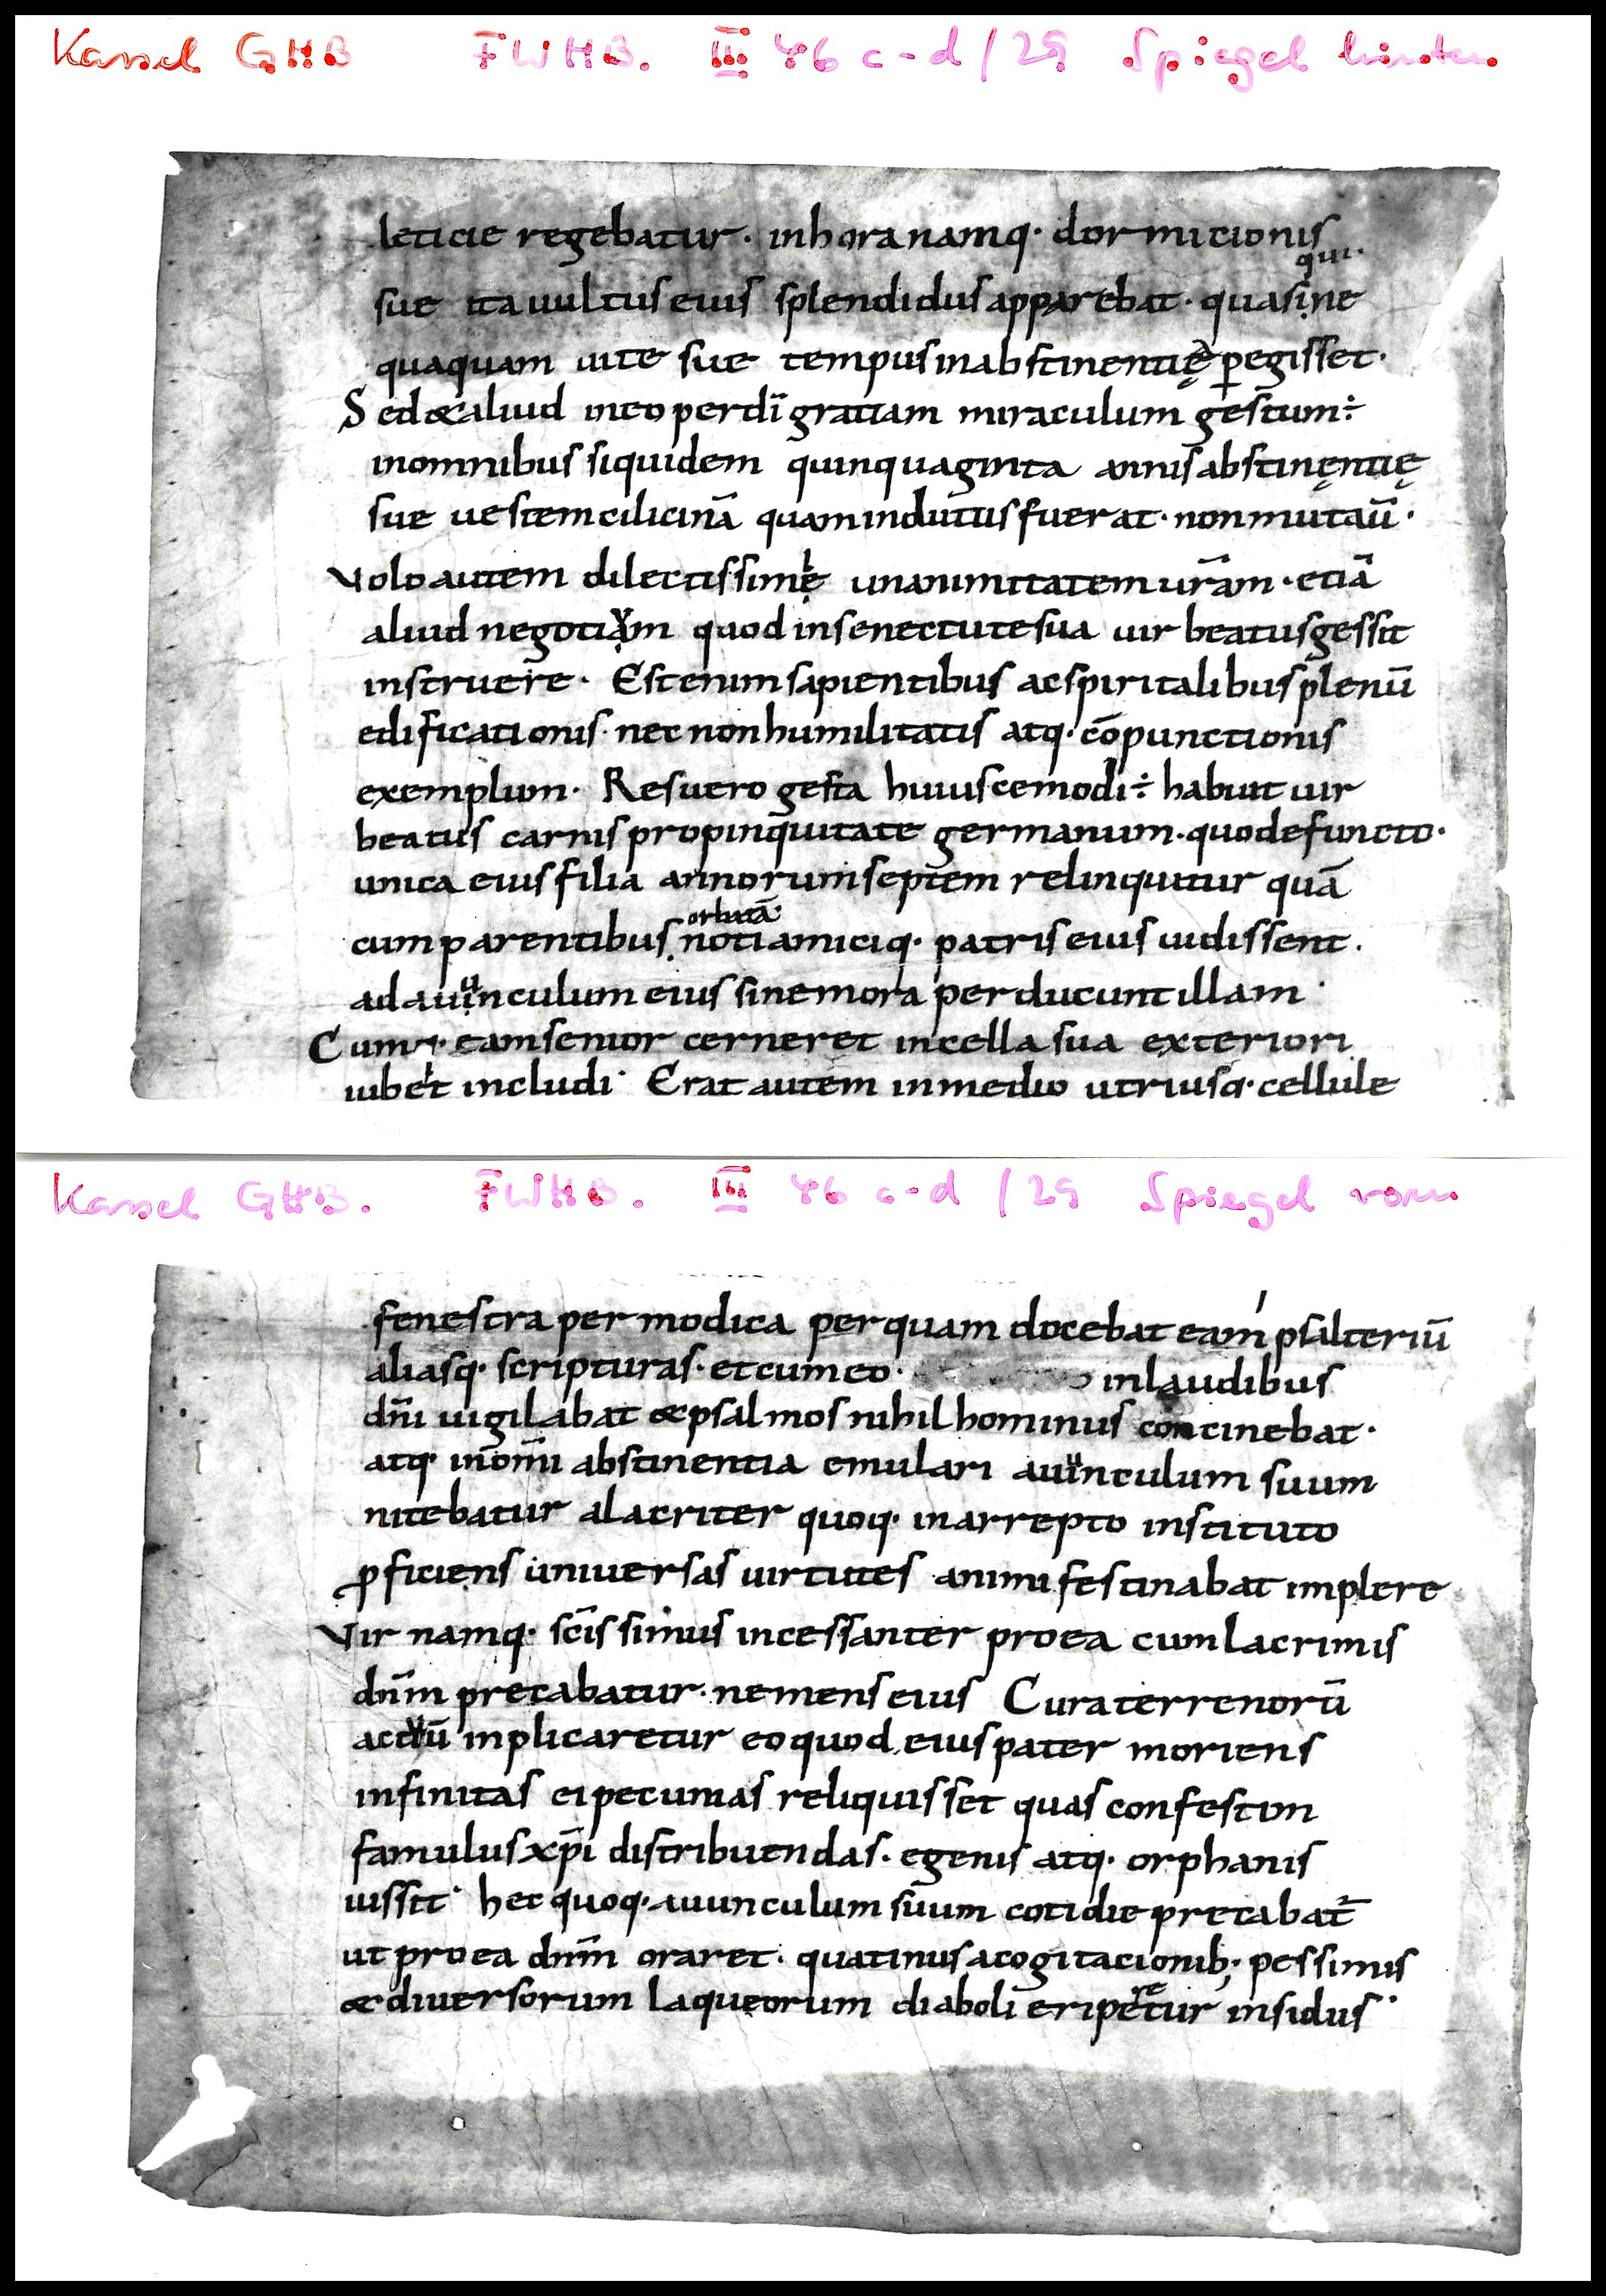 Kassel GHB FWHB. III 46 c-d / 29 Spiegel hinten
leticie regebatur · inhoranamq· dormicionis
qui·
sue ita uultus eius splendidus apparebat · quasi ne
quaquam uite sue tempus in abstinentię ꝑegisset·
Sed & aliud in eo per dī gratiam miraculum gestum÷
in omnibus siquidem quinquaginta annis abstinęntię
sue uestem cilicinā quam indutus fuerat · non mutaū ·
Volo autem dilectissimę unanimitatem urām · etiā
aliud negotium quod in senectute sua uir beatus gessit
instruere · Est enim sapientibus ac spiritalibus plenū
edificationis · nec non humilitatis atq· cōpunctionis
exemplum · Res uero gesta huiuscemodi÷ habuit uir
beatus carnis propinquitate germanum · quo defuncto ·
unica eius filia annorum septem relinquitur quā
orbatā·
cum parentibus noti amiciq· patris eius uidissent .
ad auunculum eius sine mora perducunt illam ·
Cumq· eam senior cerneret in cella sua exteriori
iubet includi · Erat autem in medio utriusq· cellule
Kassel GHB. FWHB. III 46 c-d / 29 Spiegel vorn
fenestra permodica per quam docebat eam psalteriū
aliasq· scripturas · et cum eo · in laudibus
dn̄i uigilabat & psalmos nihilhominus concinebat ·
atq· in om̄i abstinentia emulari auunculum suum
nitebatur alacriter quoq· in arrepto instituto
ꝓficiens uniuersas uirtutes animi festinabat implere
Vir namq· sc̄issimus incessanter pro ea cum lacrimis
dn̄m precabatur · ne mens eius Cura terrenorū
actuū inplicaretur eo quod eius pater moriens
infinitas ei pecunias reliquisset quas confestim
famulus xp̄i distribuendas · egenis atq· orphanis
iussit · hec quoq· auunculum suum cotidie precabat̄
ut pro ea dn̄m oraret · quatinus a cogitacionib; · pessimis
re
& diuersorum laqueorum diaboli eripetur insidiis ··